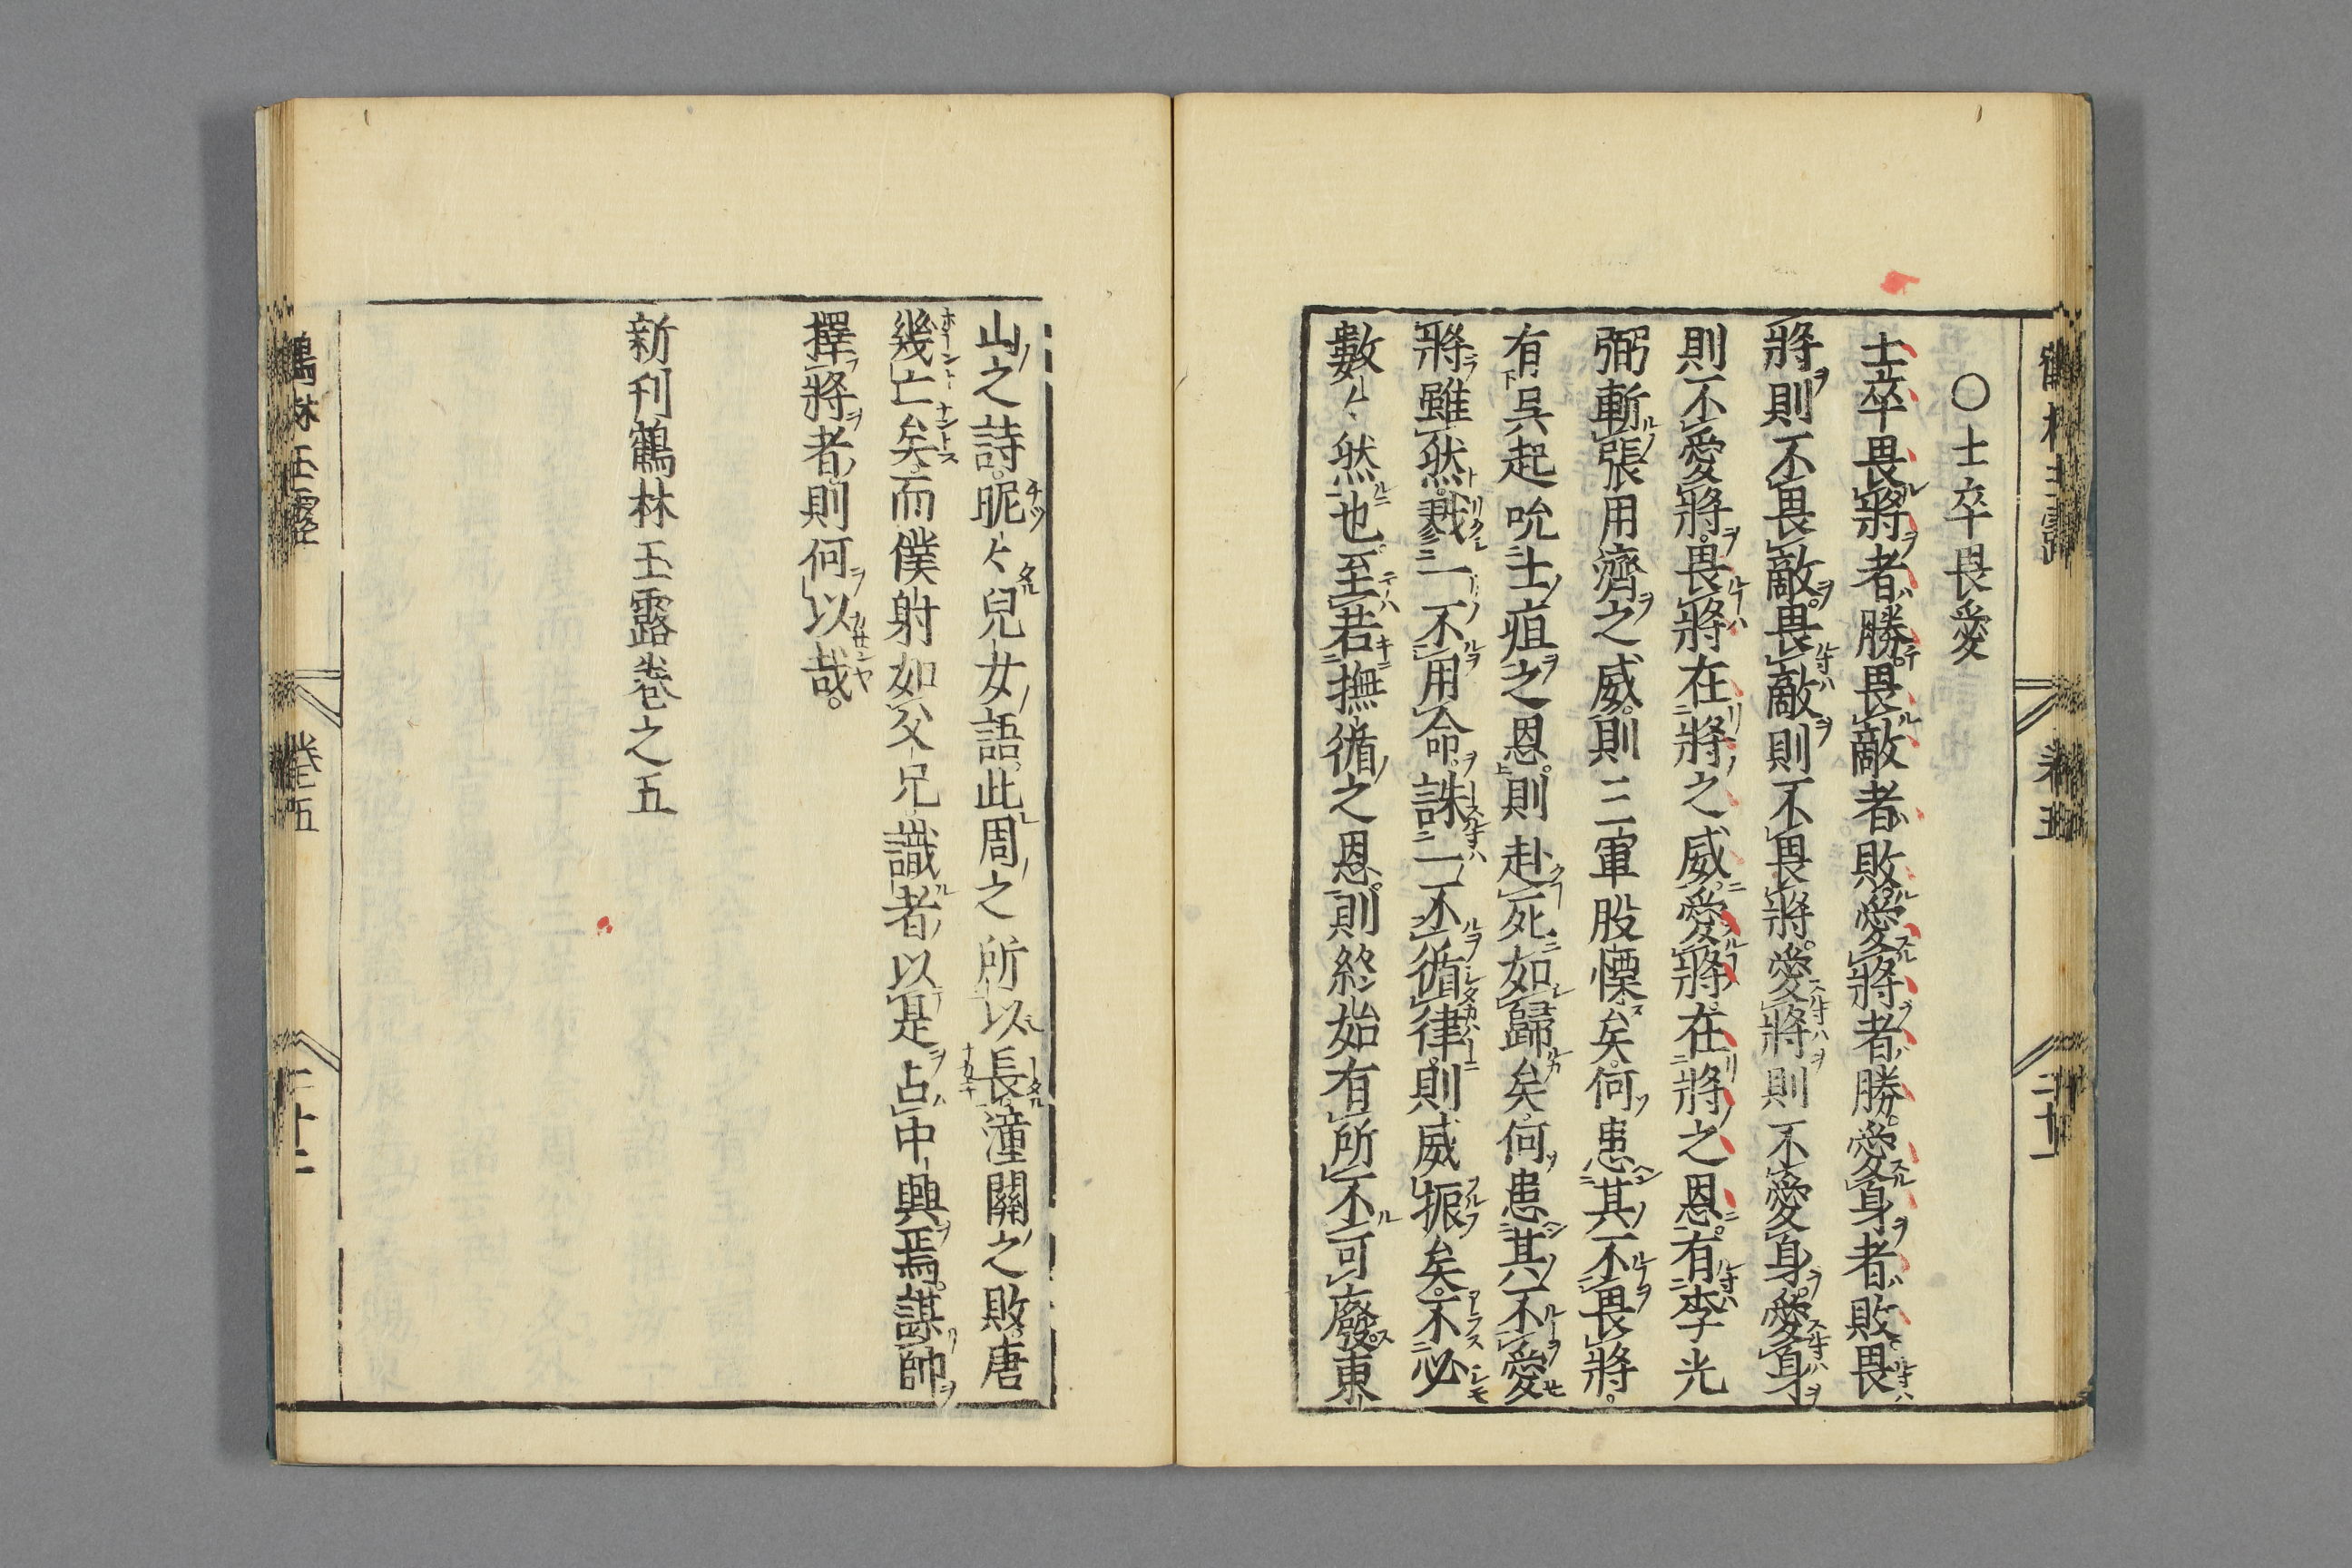 〇士卒畏愛
士卒畏將者勝畏敵者敗愛將者勝愛身者敗畏
將則不畏敵畏敵則不畏將愛將則不愛身愛身
則不愛將畏將在將之威愛將在將之恩有李光
弼斬張用濟之威則三軍股慄矣何患其不畏將
有呉起吮士疽之恩則赴死如歸矣何患其不愛
將雖然戮一不用命誅一不循律則威振矣不必
數〻然也至若撫循之恩則終始有所不可廢東
山之詩昵〻兒女語此周之所以長潼關之敗唐
幾亡矣而僕射如父兄識者以是占中興焉謀帥
擇將者則何以哉
新刊鶴林玉露卷之五
鶴林玉露 卷五 二十二